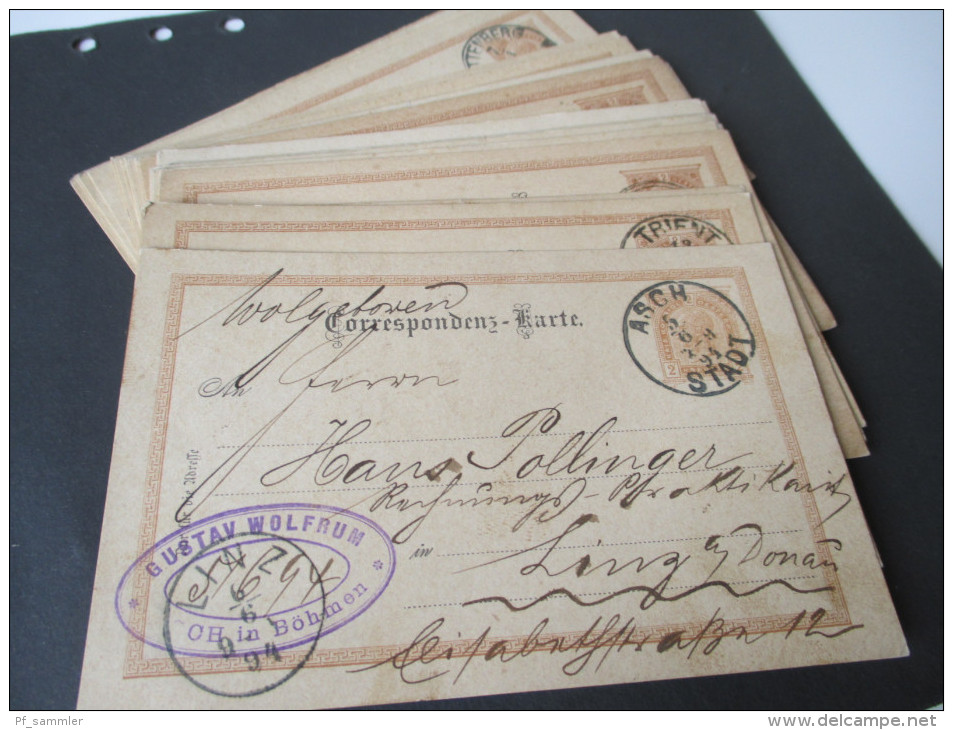 TENBERG
TRIENT
Wolgeboren
Correspondenz-Karte.
ASCH
STADT
2
An Herrn
Hans Pollinger
Rechnungs-Praktikant
in Linz a/Donau
Elisabethstraße 12
die Adresse
GUSTAV WOLFRUM
CH in Böhmen
LINZ
6
6
94
Pf_sammler
www.delcampe.net